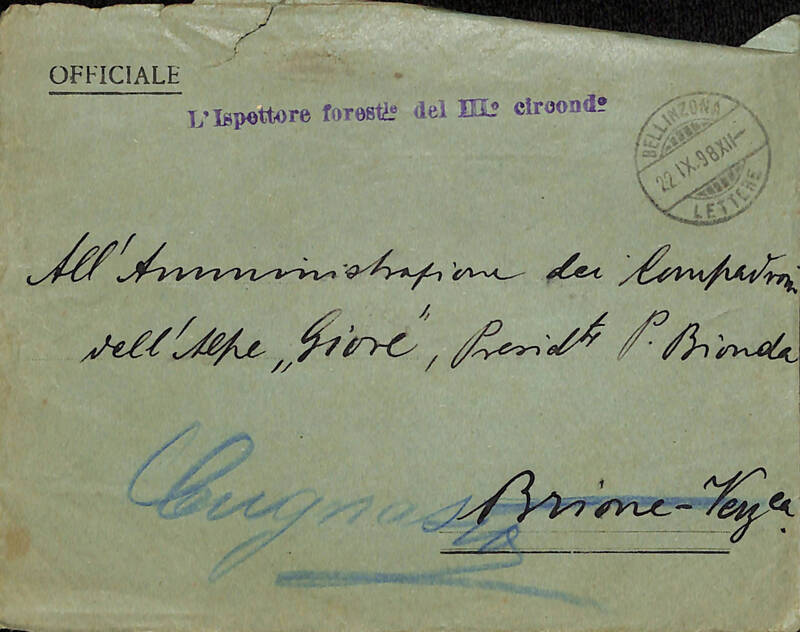 OFFICIALE
L'Ispettore forestle del IIIo circondo
BELLINZONA
22 IX.98 XII—
LETTERE
All'Amministrazione dei Compadroni
dell'Alpe „Giove", Presidte P. Bionda
Cugnasco
Brione-Verzca.